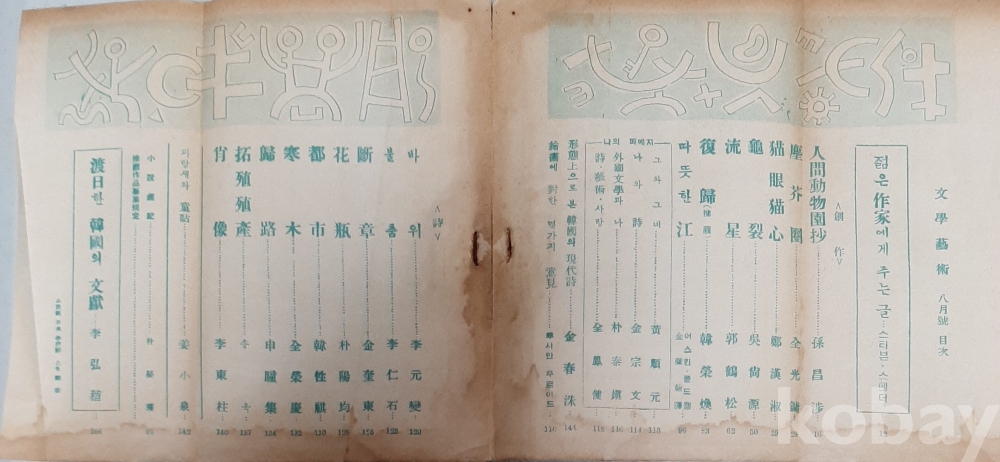 文學藝術 八月號 目次
젊은 作家에게 주는 글……스티븐·스펜더
<創作>
人間動物園抄……孫昌涉
塵芥圈……全光鏞
猫眼猫心……鄭漢淑
龜裂……吳尙源
流星……郭鶴松 62
復歸……韓榮煥
따뜻한 江……어스킨·콜드웰 96
그와 그비……黃順元 113
나와 詩……金宗文 114
外國文學과 나……朴泰鎭 116
詩·藝術·사랑……全鳳健 118
形態上으로 본 韓國의 現代詩……金春洙 144
繪畵에 對한 몇가지 意見……
<詩>
바위……李元燮 120
불춤……李仁石 123
斷章……金奎東
花瓶……朴陽均 128
都市……韓性祺 130
寒木……全榮慶 132
歸路……申瞳集 134
拓殖殖產
肖像……李東柱 140
파랑새와 童貼……姜小泉 142
小說選記……朴
推薦作品募集規定
渡日한 韓國의 文獻……李弘稙